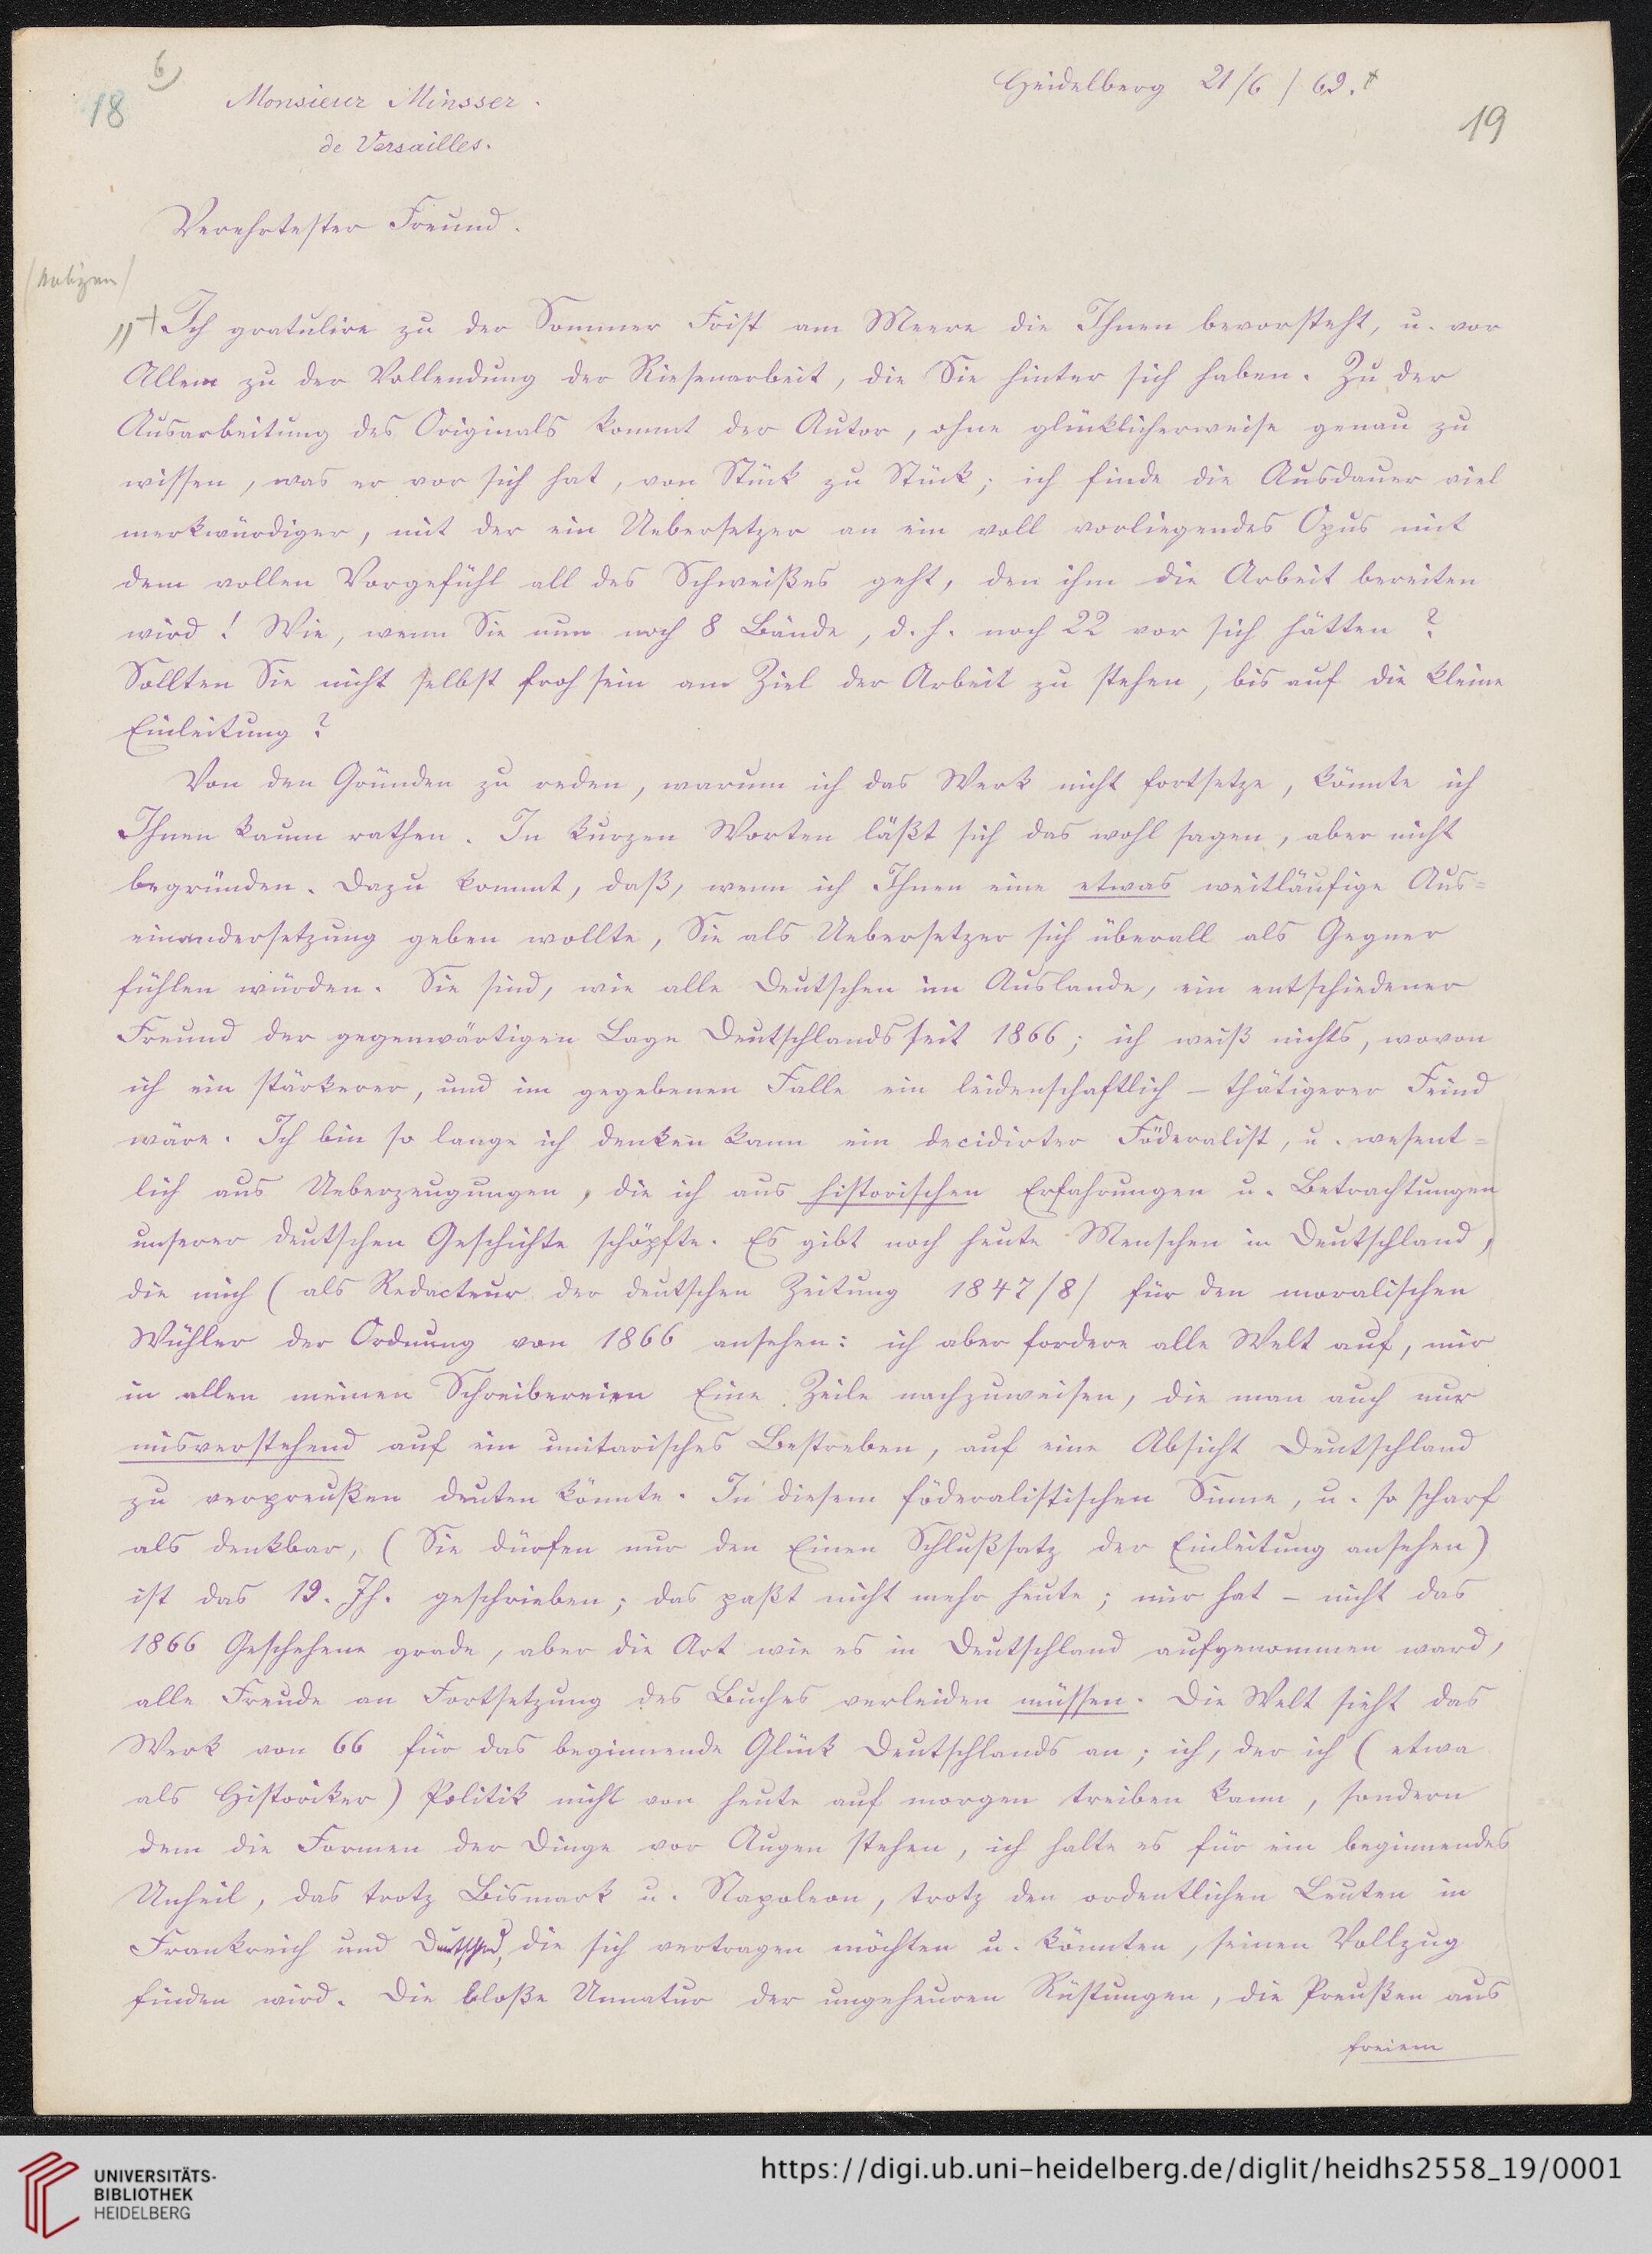 6)
18
Monsieur Minsser.
de Versailles.
Heidelberg 21/6/69.+
19
Verehrtester Freund.
(Notizen)
"+ Ich gratulire zu der Sommer Frist am Meere die Ihnen bevorsteht, u. vor
Allem zu der Vollendung der Riesenarbeit, die Sie hinter sich haben. Zu der
Ausarbeitung des Originals kommt der Autor, ohne glücklicherweise genau zu
wissen, was er vor sich hat, von Stück zu Stück; ich finde die Ausdauer viel
merkwürdiger, mit der ein Uebersetzer an ein voll vorliegendes Opus mit
dem vollen Vorgefühl all des Schweißes geht, den ihm die Arbeit bereiten
wird! Wie, wenn Sie nun noch 8 Bände, d. h. noch 22 vor sich hätten?
Sollten Sie nicht selbst froh sein am Ziel der Arbeit zu stehen, bis auf die kleine
Einleitung?
Von den Gründen zu reden, warum ich das Werk nicht fortsetze, könnte ich
Ihnen kaum rathen. In kurzen Worten läßt sich das wohl sagen, aber nicht
begründen. Dazu kommt, daß, wenn ich Ihnen eine etwas weitläufige Aus=
einandersetzung geben wollte, Sie als Uebersetzer sich überall als Gegner
fühlen würden. Sie sind, wie alle Deutschen im Auslande, ein entschiedener
Freund der gegenwärtigen Lage Deutschlands seit 1866; ich weiß nichts, wovon
ich ein stärkerer, und im gegebenen Falle ein leidenschaftlich-thätigerer Feind
wäre. Ich bin so lange ich denken kann ein decidirter Föderalist, u. wesent=
lich aus Ueberzeugungen, die ich aus historischen Erfahrungen u. Betrachtungen
unserer deutschen Geschichte schöpfte. Es gibt noch heute Menschen in Deutschland,
die mich (als Redacteur der deutschen Zeitung 1847/8/ für den moralischen
Wühler der Ordnung von 1866 ansehen: ich aber fordere alle Welt auf, mir
in allen meinen Schreibereien Eine Zeile nachzuweisen, die man auch nur
misverstehend auf ein unitarisches Bestreben, auf eine Absicht Deutschland
zu verpreußen deuten könnte. In diesem föderalistischen Sinne, u. so scharf
als denkbar, (Sie dürfen nur den Einen Schlußsatz der Einleitung ansehen)
ist das 19. Jh. geschrieben; das paßt nicht mehr heute; mir hat - nicht das
1866 Geschehene grade, aber die Art wie es in Deutschland aufgenommen ward,
alle Freude an Fortsetzung des Buches verleiden müssen. Die Welt sieht das
Werk von 66 für das beginnende Glück Deutschlands an; ich, der ich (etwa
als Historiker) Politik nicht von heute auf morgen treiben kann, sondern
dem die Formen der Dinge vor Augen stehen, ich halte es für ein beginnendes
Unheil, das trotz Bismark u. Napoleon, trotz den ordentlichen Leuten in
Frankreich und Deutschld, die sich vertragen möchten u. könnten, seinen Vollzug
finden wird. Die bloße Unnatur der ungeheuren Rüstungen, die Preußen aus
freiem
UNIVERSITÄTS-
BIBLIOTHEK
HEIDELBERG
https://digi.ub.uni-heidelberg.de/diglit/heidhs2558_19/0001